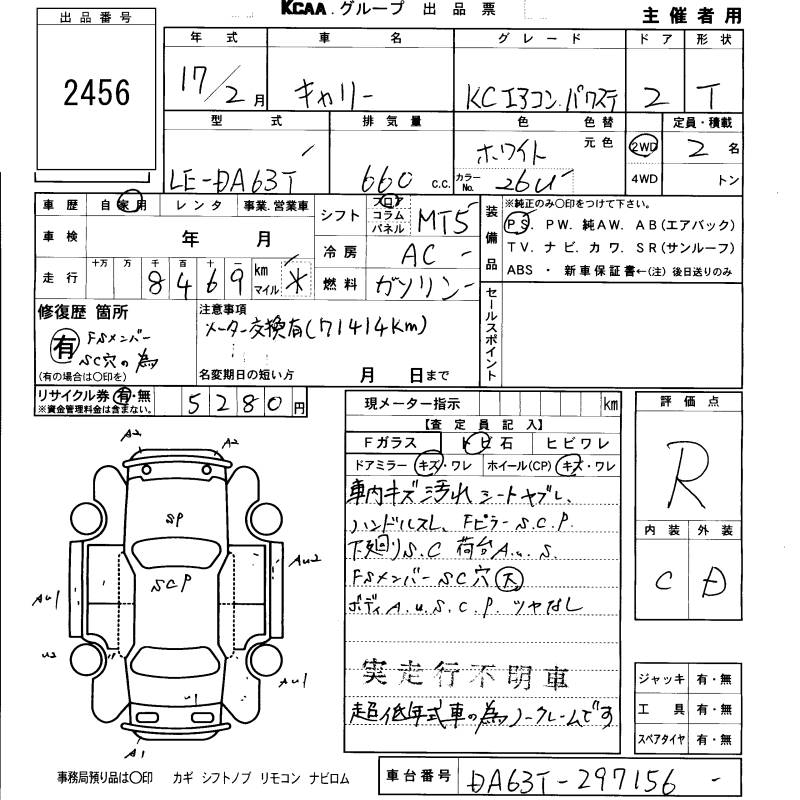 KCAA.グループ 出品票
主催者用
出品番号
2456
年式 車名 グレード ドア 形状
17/2月 キャリー KCエアコン.パワステ 2 T
型式 排気量 色 色替 定員・積載
LE-DA63T 660 c.c. ホワイト 元色 2WD 2名
カラーNo. 26U 4WD トン
車歴 自家用 レンタ 事業.営業車
車検 年 月
走行 十万 万 千 百 十 一
8469 km マイル *
シフト フロア コラム パネル MT5
冷房 AC -
燃料 ガソリン
装備品
※純正のみ〇印をつけて下さい。
PS. PW. 純AW. AB(エアバック)
TV. ナビ. カワ. SR(サンルーフ)
ABS ・ 新車保証書←(注)後日送りのみ
修復歴 箇所
有 FSメンバー
SC穴の為
(有の場合は〇印を)
注意事項
メーター交換有(71414km)
名変期日の短い方 月 日まで
セールスポイント
リサイクル券 有・無
※資金管理料金は含まない。
5280円
現メーター指示 km
【査定員記入】
Fガラス トビ石 ヒビワレ
ドアミラー キズ・ワレ ホイール(CP) キズ・ワレ
車内キズ汚れ シートヤブレ、
ハンドルスレ、Fピラーs.c.p.
下廻りs.c 荷台A.u.s.
FSメンバーsc穴大
ボディA.u.s.c.p.ツヤなし
実走行不明車
超低年式車の為ノークレームです
評価点
R
内装 外装
C D
A2
A2
SP
SCP
Au2
Au1
u2
Au1
u1
A1
ジャッキ 有・無
工具 有・無
スペアタイヤ 有・無
事務局預り品は〇印 カギ シフトノブ リモコン ナビロム
車台番号 DA63T-297156 -